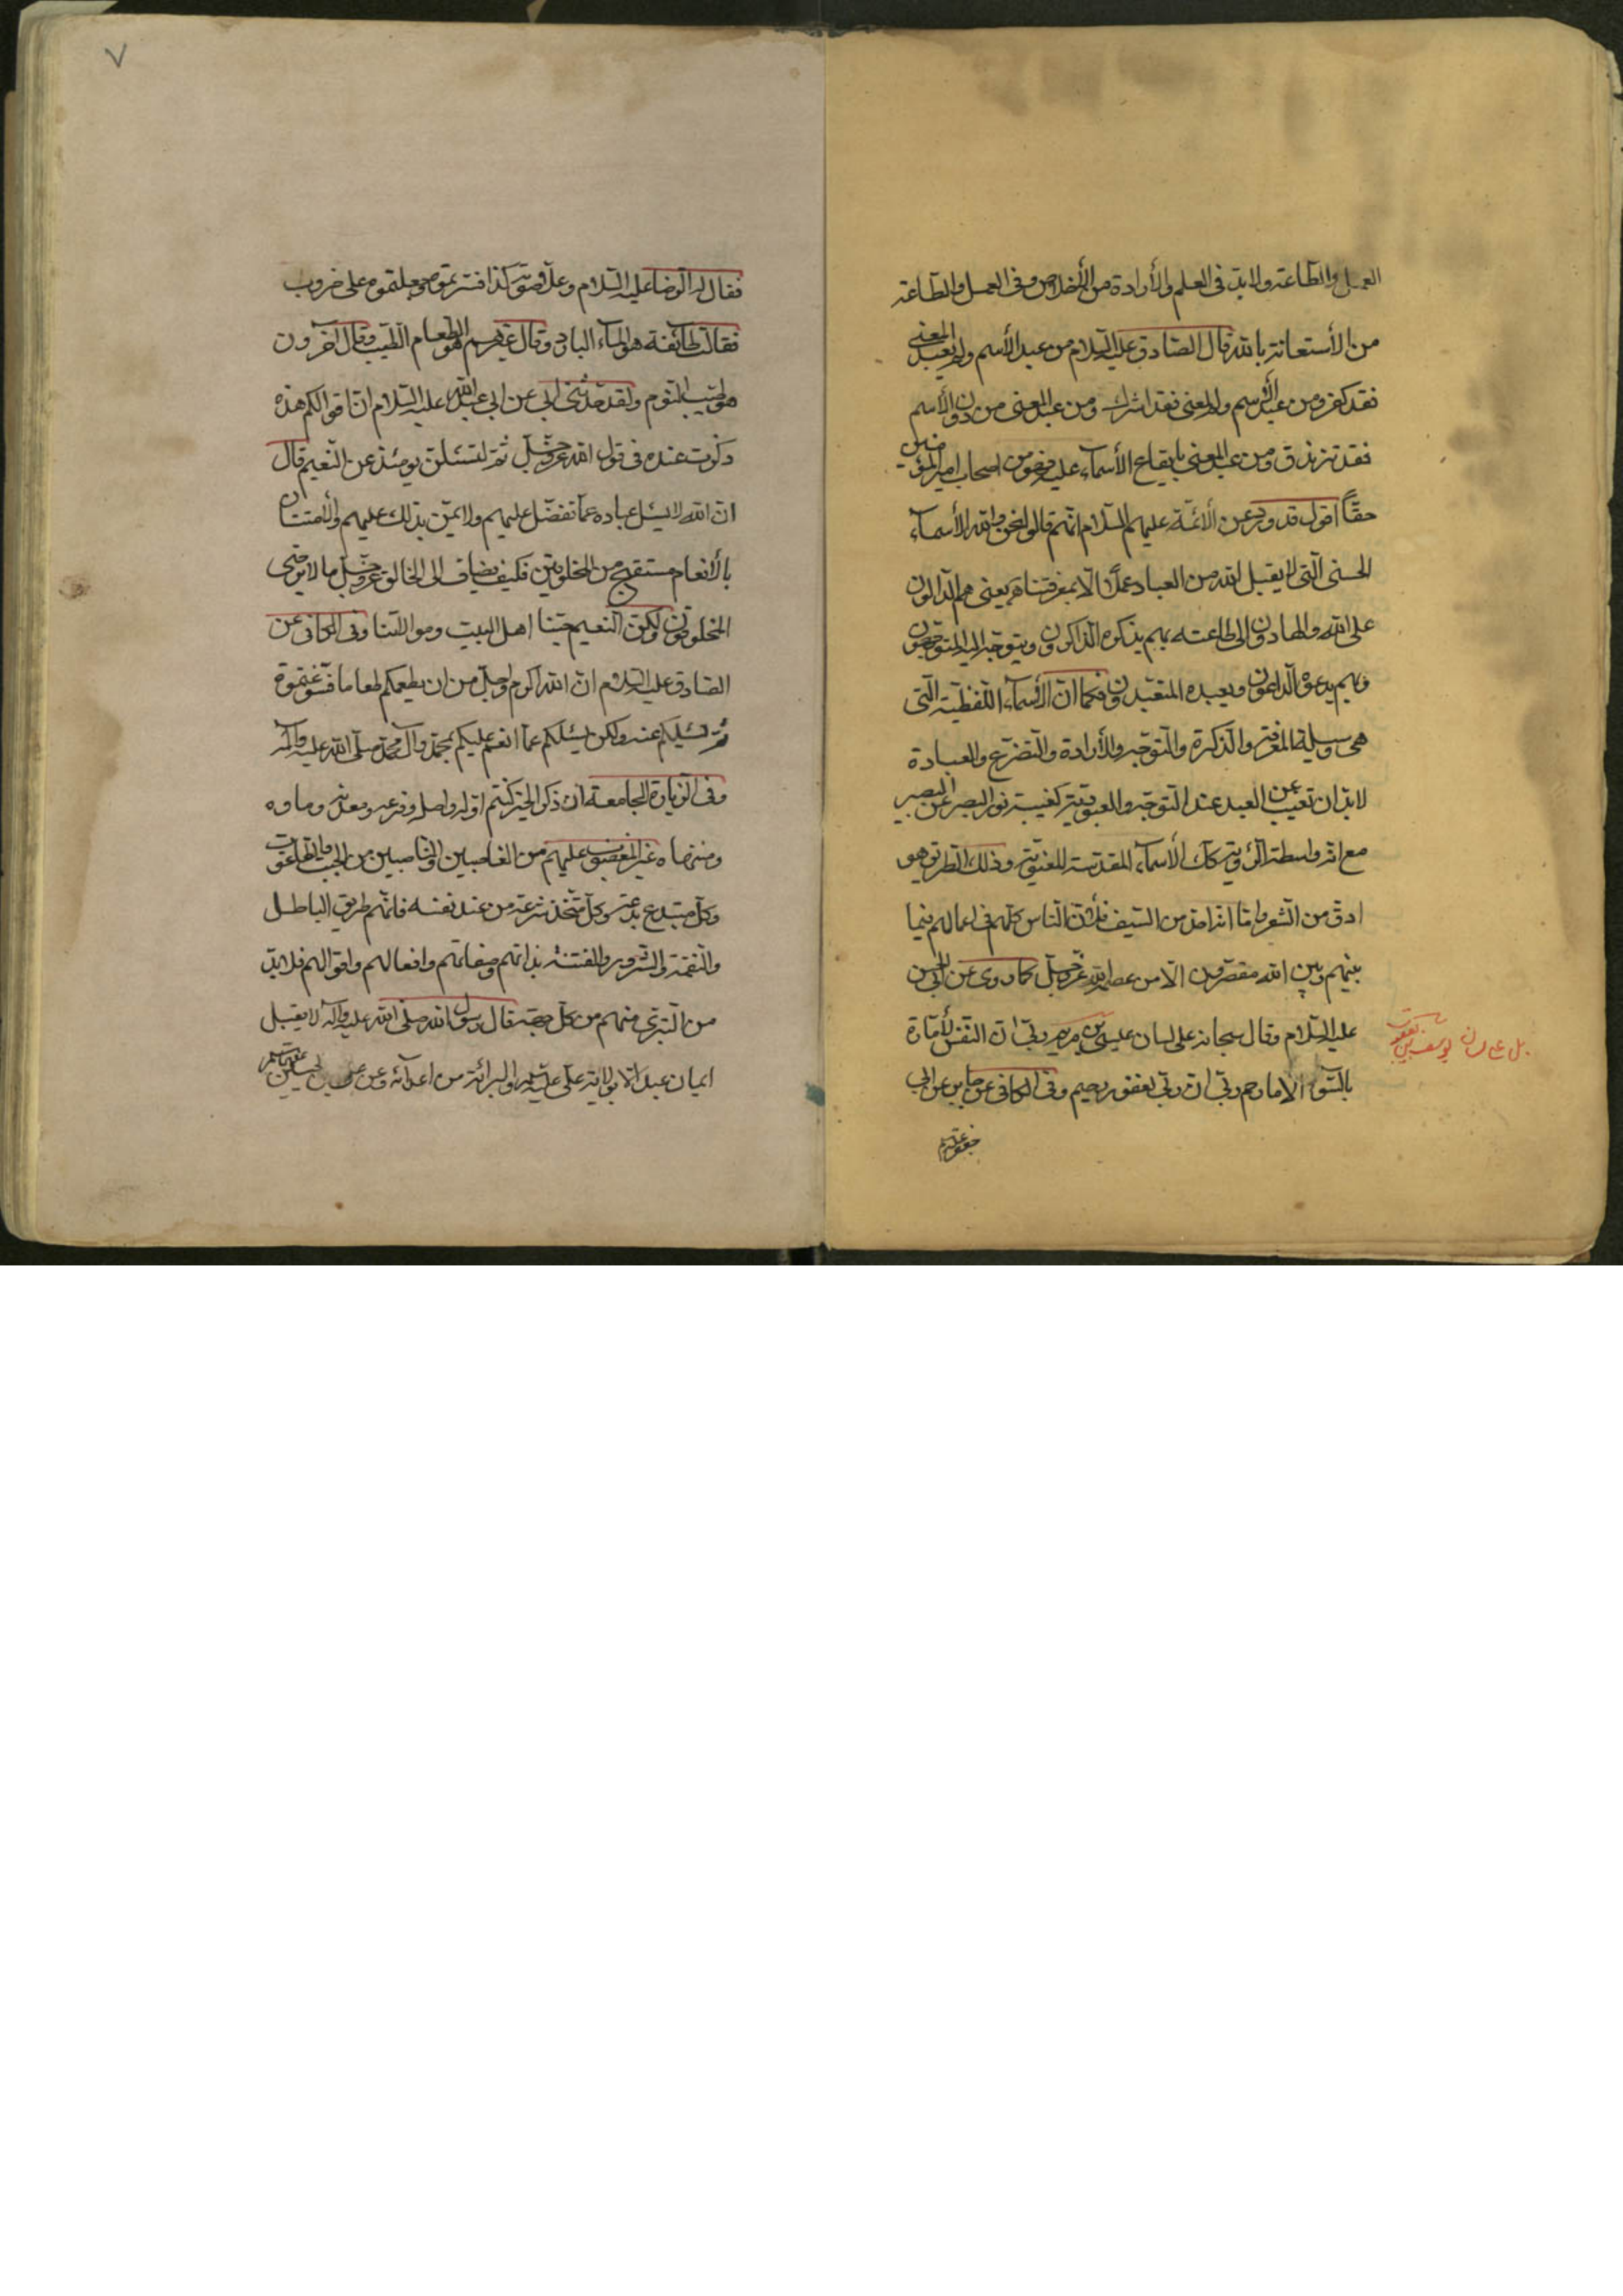 العمل والطاعة ولابد في العلم والأرادة من الأخلاص وفي العمل والطاعة
من الأستعانة بالله قال الصادق عليه السلام من عبد الأسم ولم يعبد المعنى
فقد كفر ومن عبد الأسم والمعنى فقد اشرك ومن عبد المعنى من دون الأسم
فقد تزندق ومن عبد المعنى بايقاع الأسماء عليه فهو من اصحاب امير المؤمنين
حقّاً اقول قد ورد عن الأئمة عليهم السلام انهم قالوا نحن والله الأسماء
الحسنى التي لا يقبل الله من العباد عملا الا بمعرفتنا يعني هم الدالون
على الله والهادون الى طاعته بهم يذكره الذاكرون ويتوجه اليه المتوجهون
وبهم يدعوه الداعون ويعبده المتعبدون فكما ان الأسماء اللفظية التي
هي وسيلة المعرفة والذكرة والتوجه والأرادة والتضرع والعبادة
لابد ان تغيب عن العبد عند التوجه والعبودية كغيبة نور البصر عن البصير
مع انه واسطة الرؤية كك الأسماء المقدسة المعنوية وذلك الطريق هو
ادق من الشعر واما انه احد من السيف فلأن الناس كلهم في اعمالهم فيما
بينهم وبين الله مقصرون الا من عصمه الله عز وجل كما روى عن ابي الحسن
عليه السلام وقال سبحانه على لسان عيسى بن مريم ربي ان النفس لأمارة
بل على لسان يوسف بن يعقوب
بالسوء الا ما رحم ربي ان ربي لغفور رحيم وفي الكافي عن جابر عن ابي
جعفر عليه
فقال له الرضا عليه السلام وعلا صوته كذا فسرتموه وجعلتموه على ضروب
فقالت طائفة هو الماء البارد وقال غيرهم هو الطعام الطيب وقال اخرون
هو طيب النوم ولقد حدثني ابي عن ابي عبد الله عليه السلام ان اقوالكم هذه
ذكرت عنده في قول الله عز وجل ثم لتسئلن يومئذ عن النعيم قال
ان الله لا يسئل عباده عما تفضل عليهم ولا يمن بذلك عليهم والأمتنان
بالأنعام مستقبح من المخلوقين فكيف يضاف الى الخالق عز وجل ما لا يرضى
المخلوقون ولكن النعيم حبنا اهل البيت وموالاتنا وفي الكافي عن
الصادق عليه السلام ان الله اكرم واجل من ان يطعمكم طعاما فسوغتموه
ثم يسئلكم عنه ولكن يسئلكم عما انعم عليكم بمحمد وآل محمد صلى الله عليه وآله
وفي الزيارة الجامعة ان ذكر الخير كنتم اوله واصله وفرعه ومعدنه وماويه
ومنتهاه غير المغضوب عليهم من الغاصبين والناصبين من الجبت والطاغوت
وكل مبتدع بدعة وكل متخذ شرعة من عند نفسه فانهم طريق الباطل
والنقمة والشرور والفتنة بذاتهم وصفاتهم وافعالهم واقوالهم فلابد
من التبرى منهم من كل جهة قال رسول الله صلى الله عليه وآله لا يقبل
ايمان عبد الا بولاية علي عليه السلام والبرائة من اعدائه وعن علي بن الحسين
٧